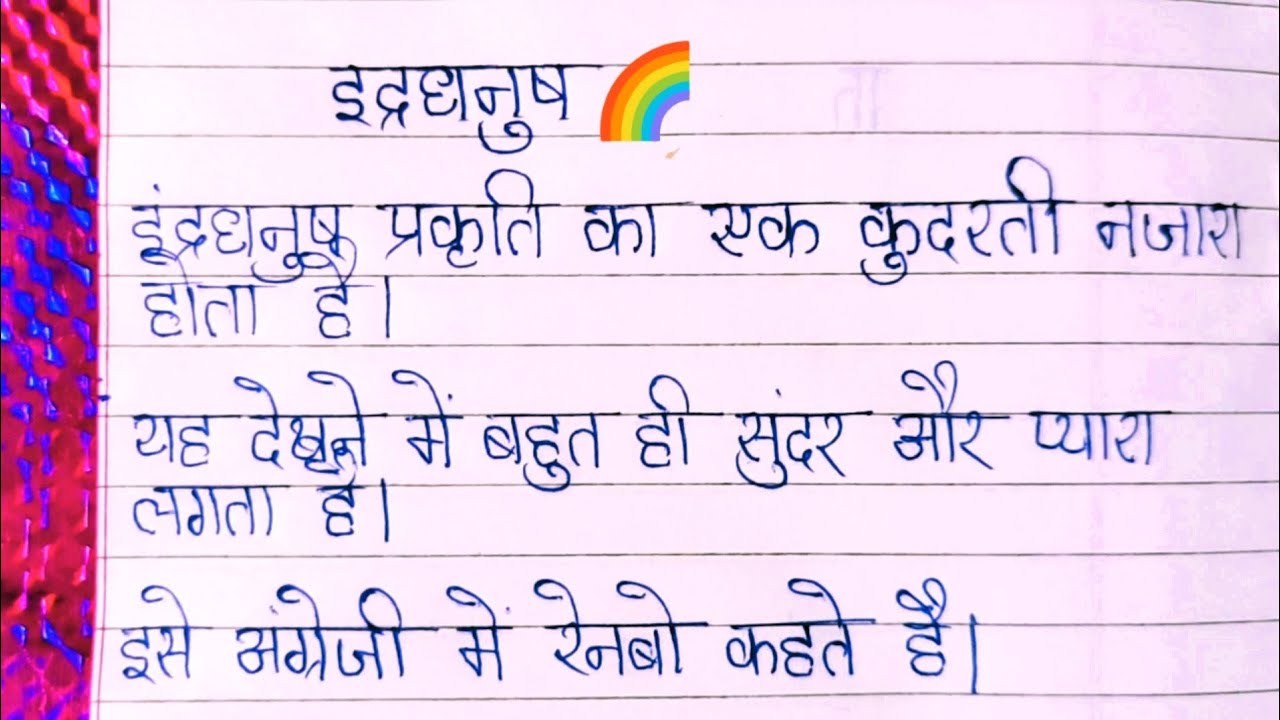 इद्रधनुष
इंद्रधनुष प्रकृति का एक कुदरती नजारा
होता है।
यह देखने में बहुत ही सुंदर और प्यारा
लगता है।
इसे अंग्रेजी में रेनबो कहते है।